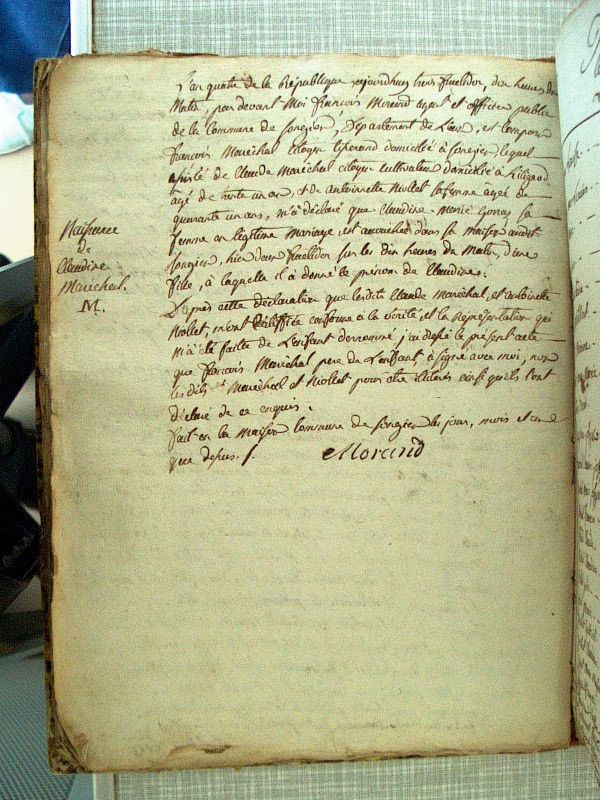 Naissance
de
Claudine
Maréchal.
M.
L'an quatre de la République, aujourdhuy trois fructidor, dix heures du
Matin, par devant Moi françois Morand agent et officier public
de la Commune de Songieu, Département de L'ain, est comparu
françois Maréchal Citoyen domicilié à Songieu, lequel
assisté de Claude Maréchal citoyen cultivateur domicilié à
agé de trente un ans, et de antoinette Niollet femme agée de
quarante un ans, m'a déclaré que Claudine Gonay sa
femme en légitime Mariage, est accouchée dans sa maison audit
Songieu, hier deux fructidor sur les dix heures du Matin, d'une
fille, à laquelle il a donné le prénom de Claudine.
D'après cette déclaration que lesdits Claude Maréchal, et antoinette
Niollet, m'ont certiffiée conforme à la vérité, et la Représentation qui
m'a été faite de L'enfant dénommé, j'ai dressé le présent acte
que françois Maréchal père de L'enfant, à signé avec moi, non
lesdits Maréchal et Niollet pour être illitérés ainsi qu'ils l'ont
déclaré de ce enquis.
fait en la Maison Commune de Songieu les jour, mois et an
que dessus.
Morand